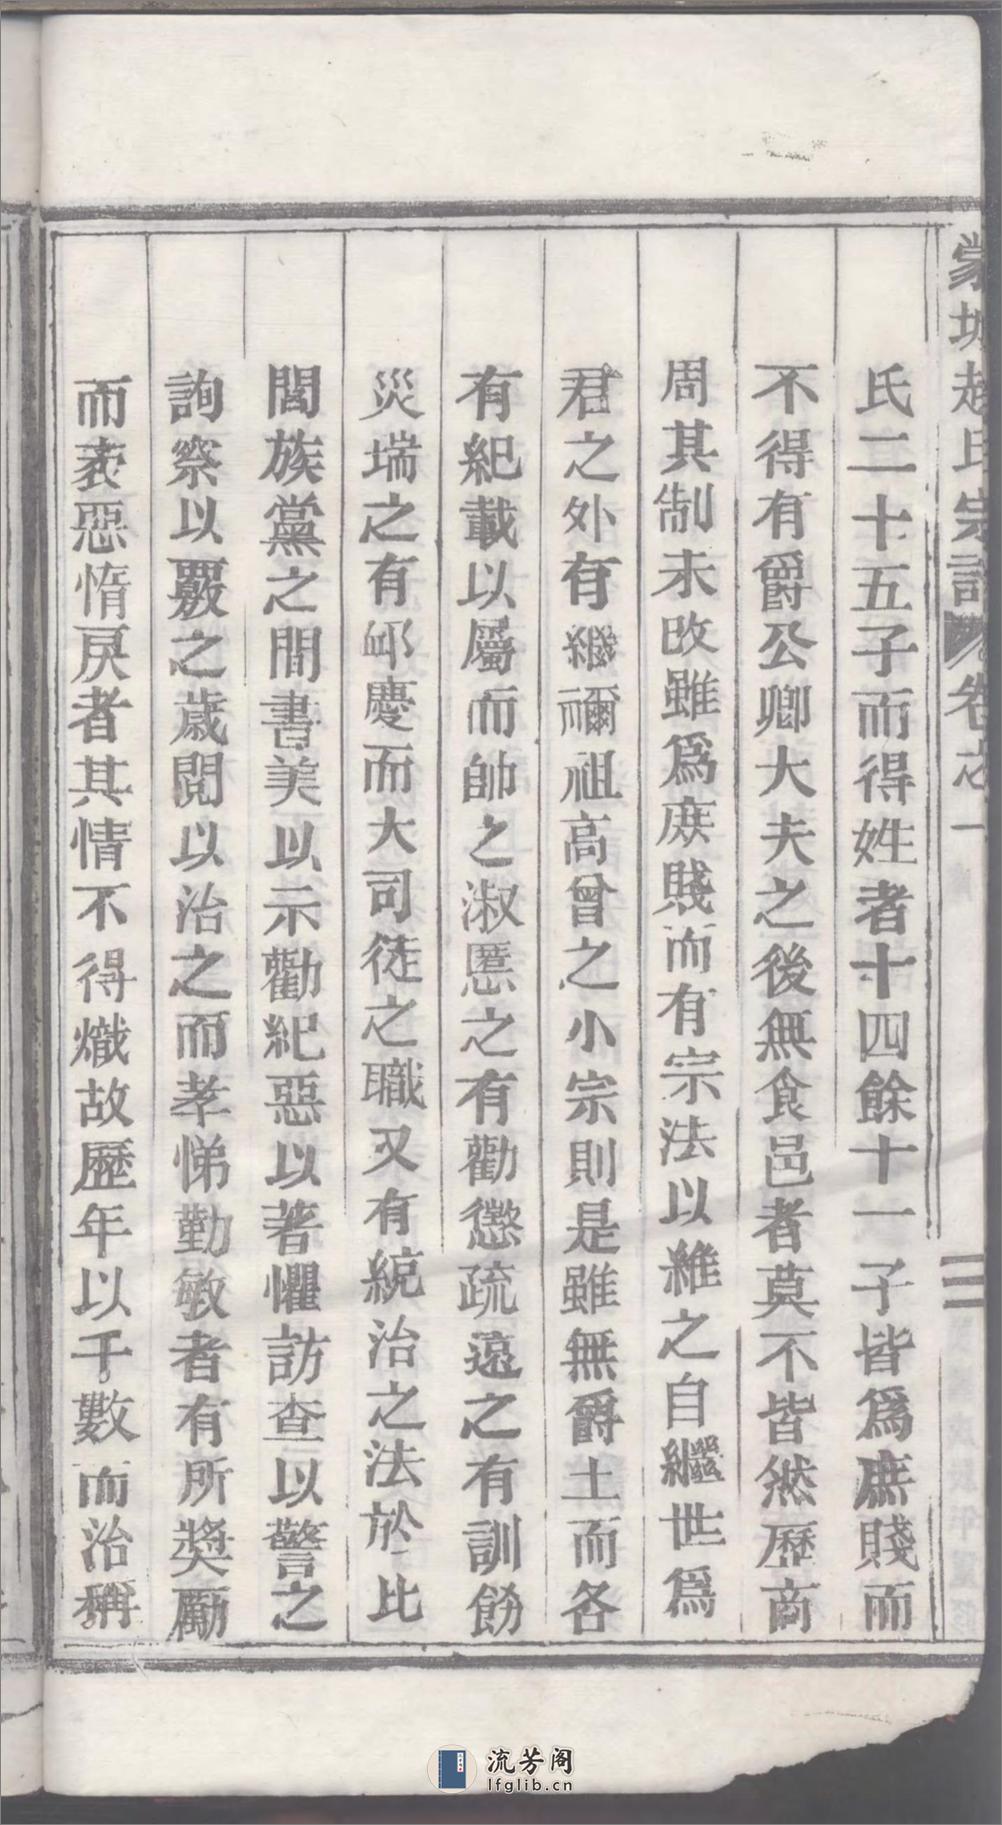 蒙城趙氏宗譜 卷之一 二
氏二十五子而得姓者十四餘十一子皆爲庶賤而
不得有爵公卿大夫之後無食邑者莫不皆然歷商
周其制未改雖爲庶賤而有宗法以維之自繼世爲
君之外有繼禰祖高曾之小宗則是雖無爵土而各
有紀載以屬而帥之淑慝之有勸懲疏遠之有訓飭
災瑞之有邺慶而大司徒之職又有統治之法於比
閭族黨之間書美以示勸紀惡以著懼訪查以警之
詢察以覈之歲閱以治之而孝悌勤敏者有所獎勵
而衺惡惰戾者其情不得熾故歷年以千數而治稱
流芳阁
lfglib.cn